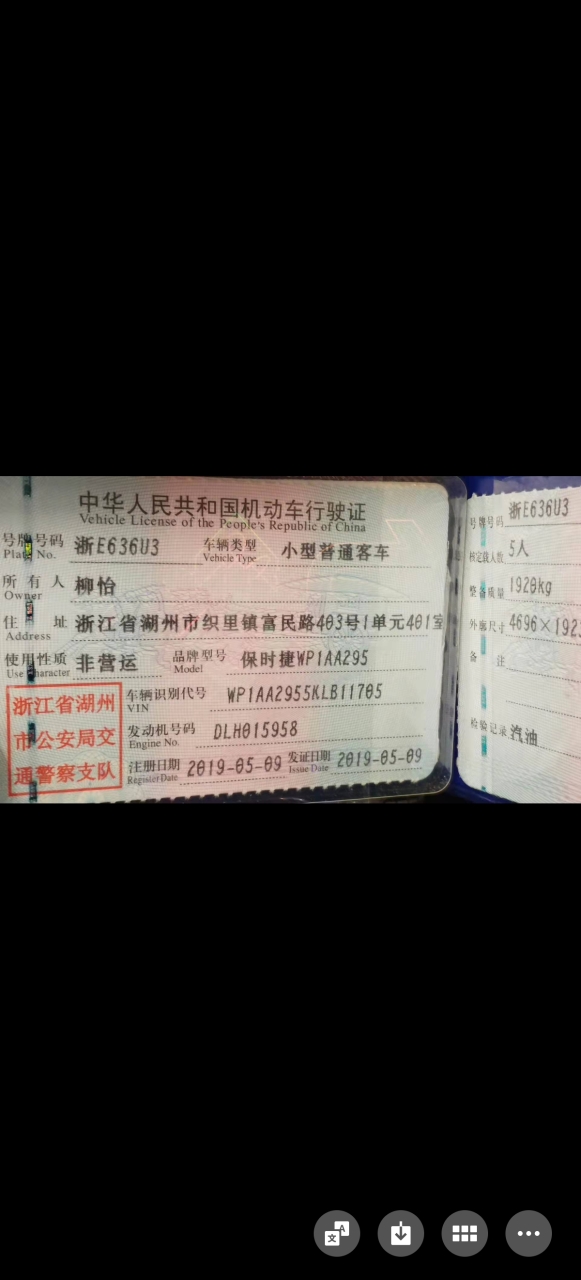 中华人民共和国机动车行驶证
Vehicle License of the People's Republic of China
号牌号码 浙E636U3 车辆类型 小型普通客车
Plate No. Vehicle Type
所有人 柳怡
Owner
住址 浙江省湖州市织里镇富民路403号1单元401室
Address
使用性质 非营运 品牌型号 保时捷WP1AA295
Use Character Model
浙江省湖州
市公安局交
通警察支队
车辆识别代号 WP1AA2955KLB11705
VIN
发动机号码 DLH015958
Engine No.
注册日期 2019-05-09 发证日期 2019-05-09
Register Date Issue Date
号牌号码 浙E636U3
核定载人数 5人
整备质量 1920kg
外廓尺寸 4696×192
备注
检验记录 汽油